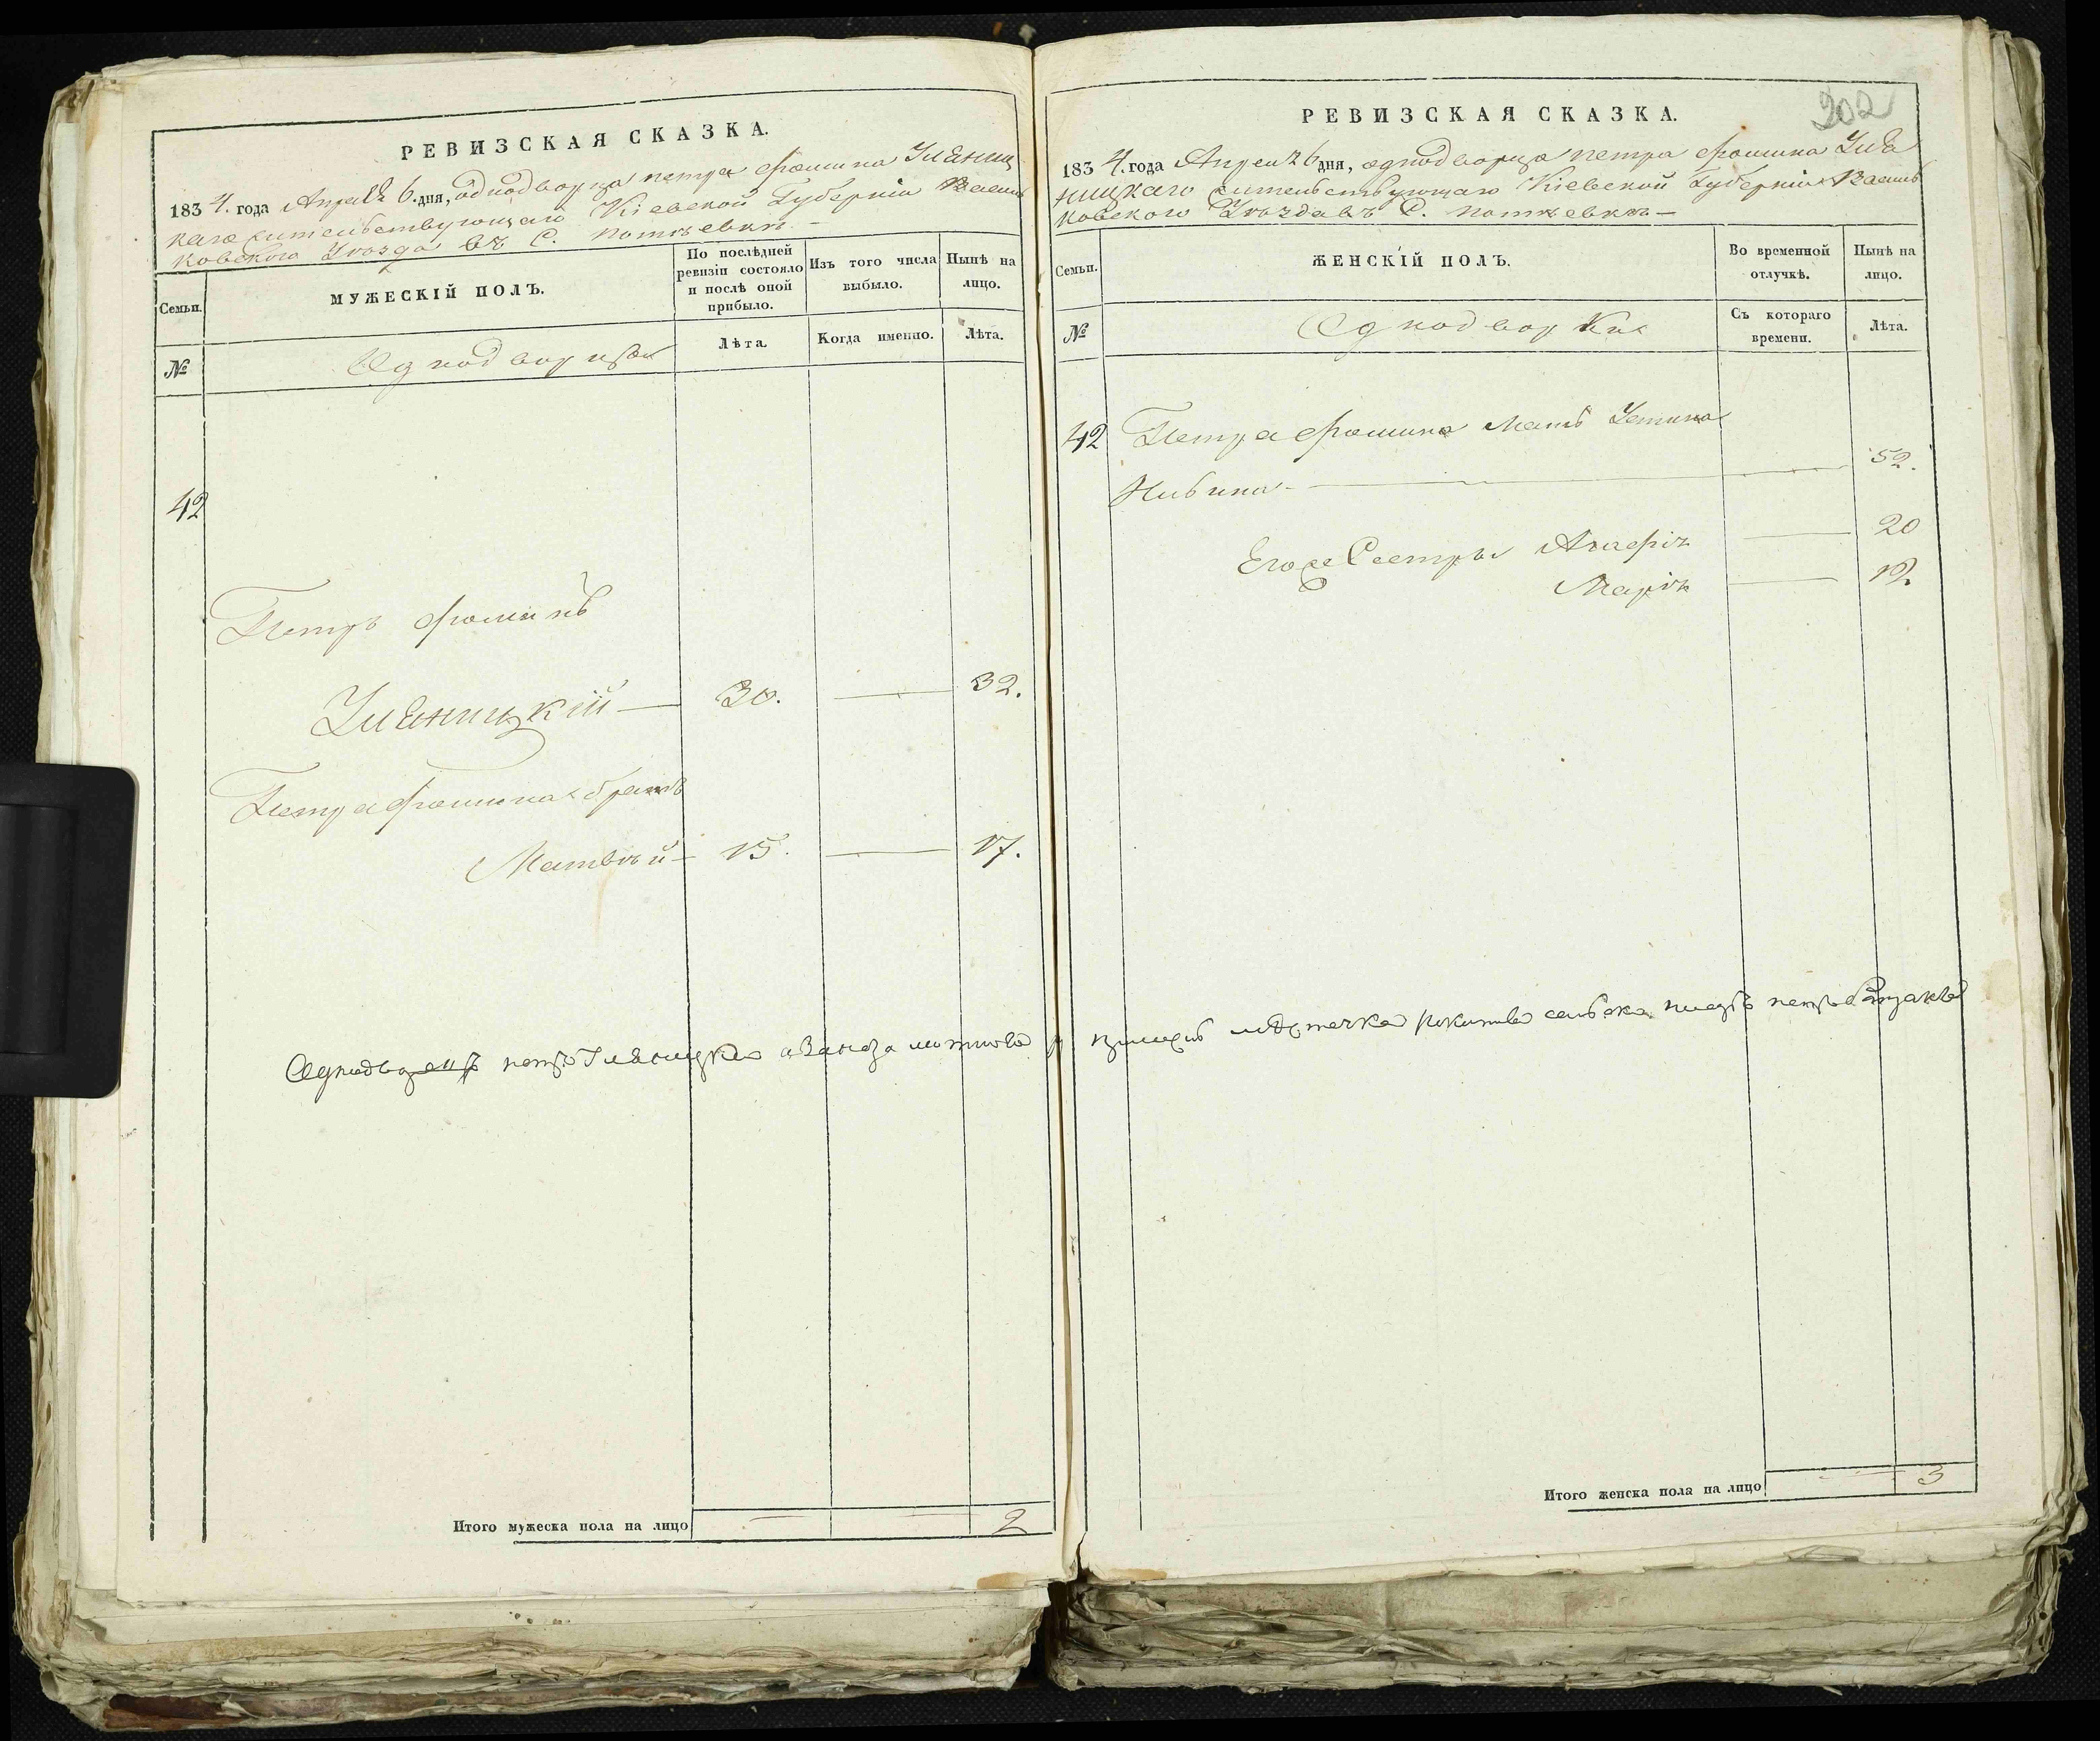 РЕВИЗСКАЯ СКАЗКА.
1834. года Апреля 6. дня, однодворца петра фомина Улѣниц
каго жительствующаго Кіевской Губерніи Василь
ковского Уѣзда въ С.
Семьи.
МУЖЕСКІЙ ПОЛЪ.
По послѣдней ревизіи состояло и послѣ оной прибыло.
Изъ того числа выбыло.
Нынѣ на лицо.
№
Однодворцы
Лѣта.
Когда именно.
Лѣта.
42
Петръ фоминъ
30. 32.
Петра фомина братъ
Матвѣй 15. 17.
Однодворецъ петръ
Итого мужеска пола на лицо 2
202
РЕВИЗСКАЯ СКАЗКА.
1834. года Апреля 6 дня, однодворца петра фомина
ницкаго жительствующаго Кіевской Губерніи Василь
ковского Уѣзда въ С.
Семьи.
ЖЕНСКІЙ ПОЛЪ.
Во временной отлучкѣ.
Нынѣ на лицо.
№
Однодворки
Съ котораго времени.
Лѣта.
42 Петра фомина мать Устина
52.
Его же Сестры Агафія 20
Марія 12.
Итого женска пола на лицо 3